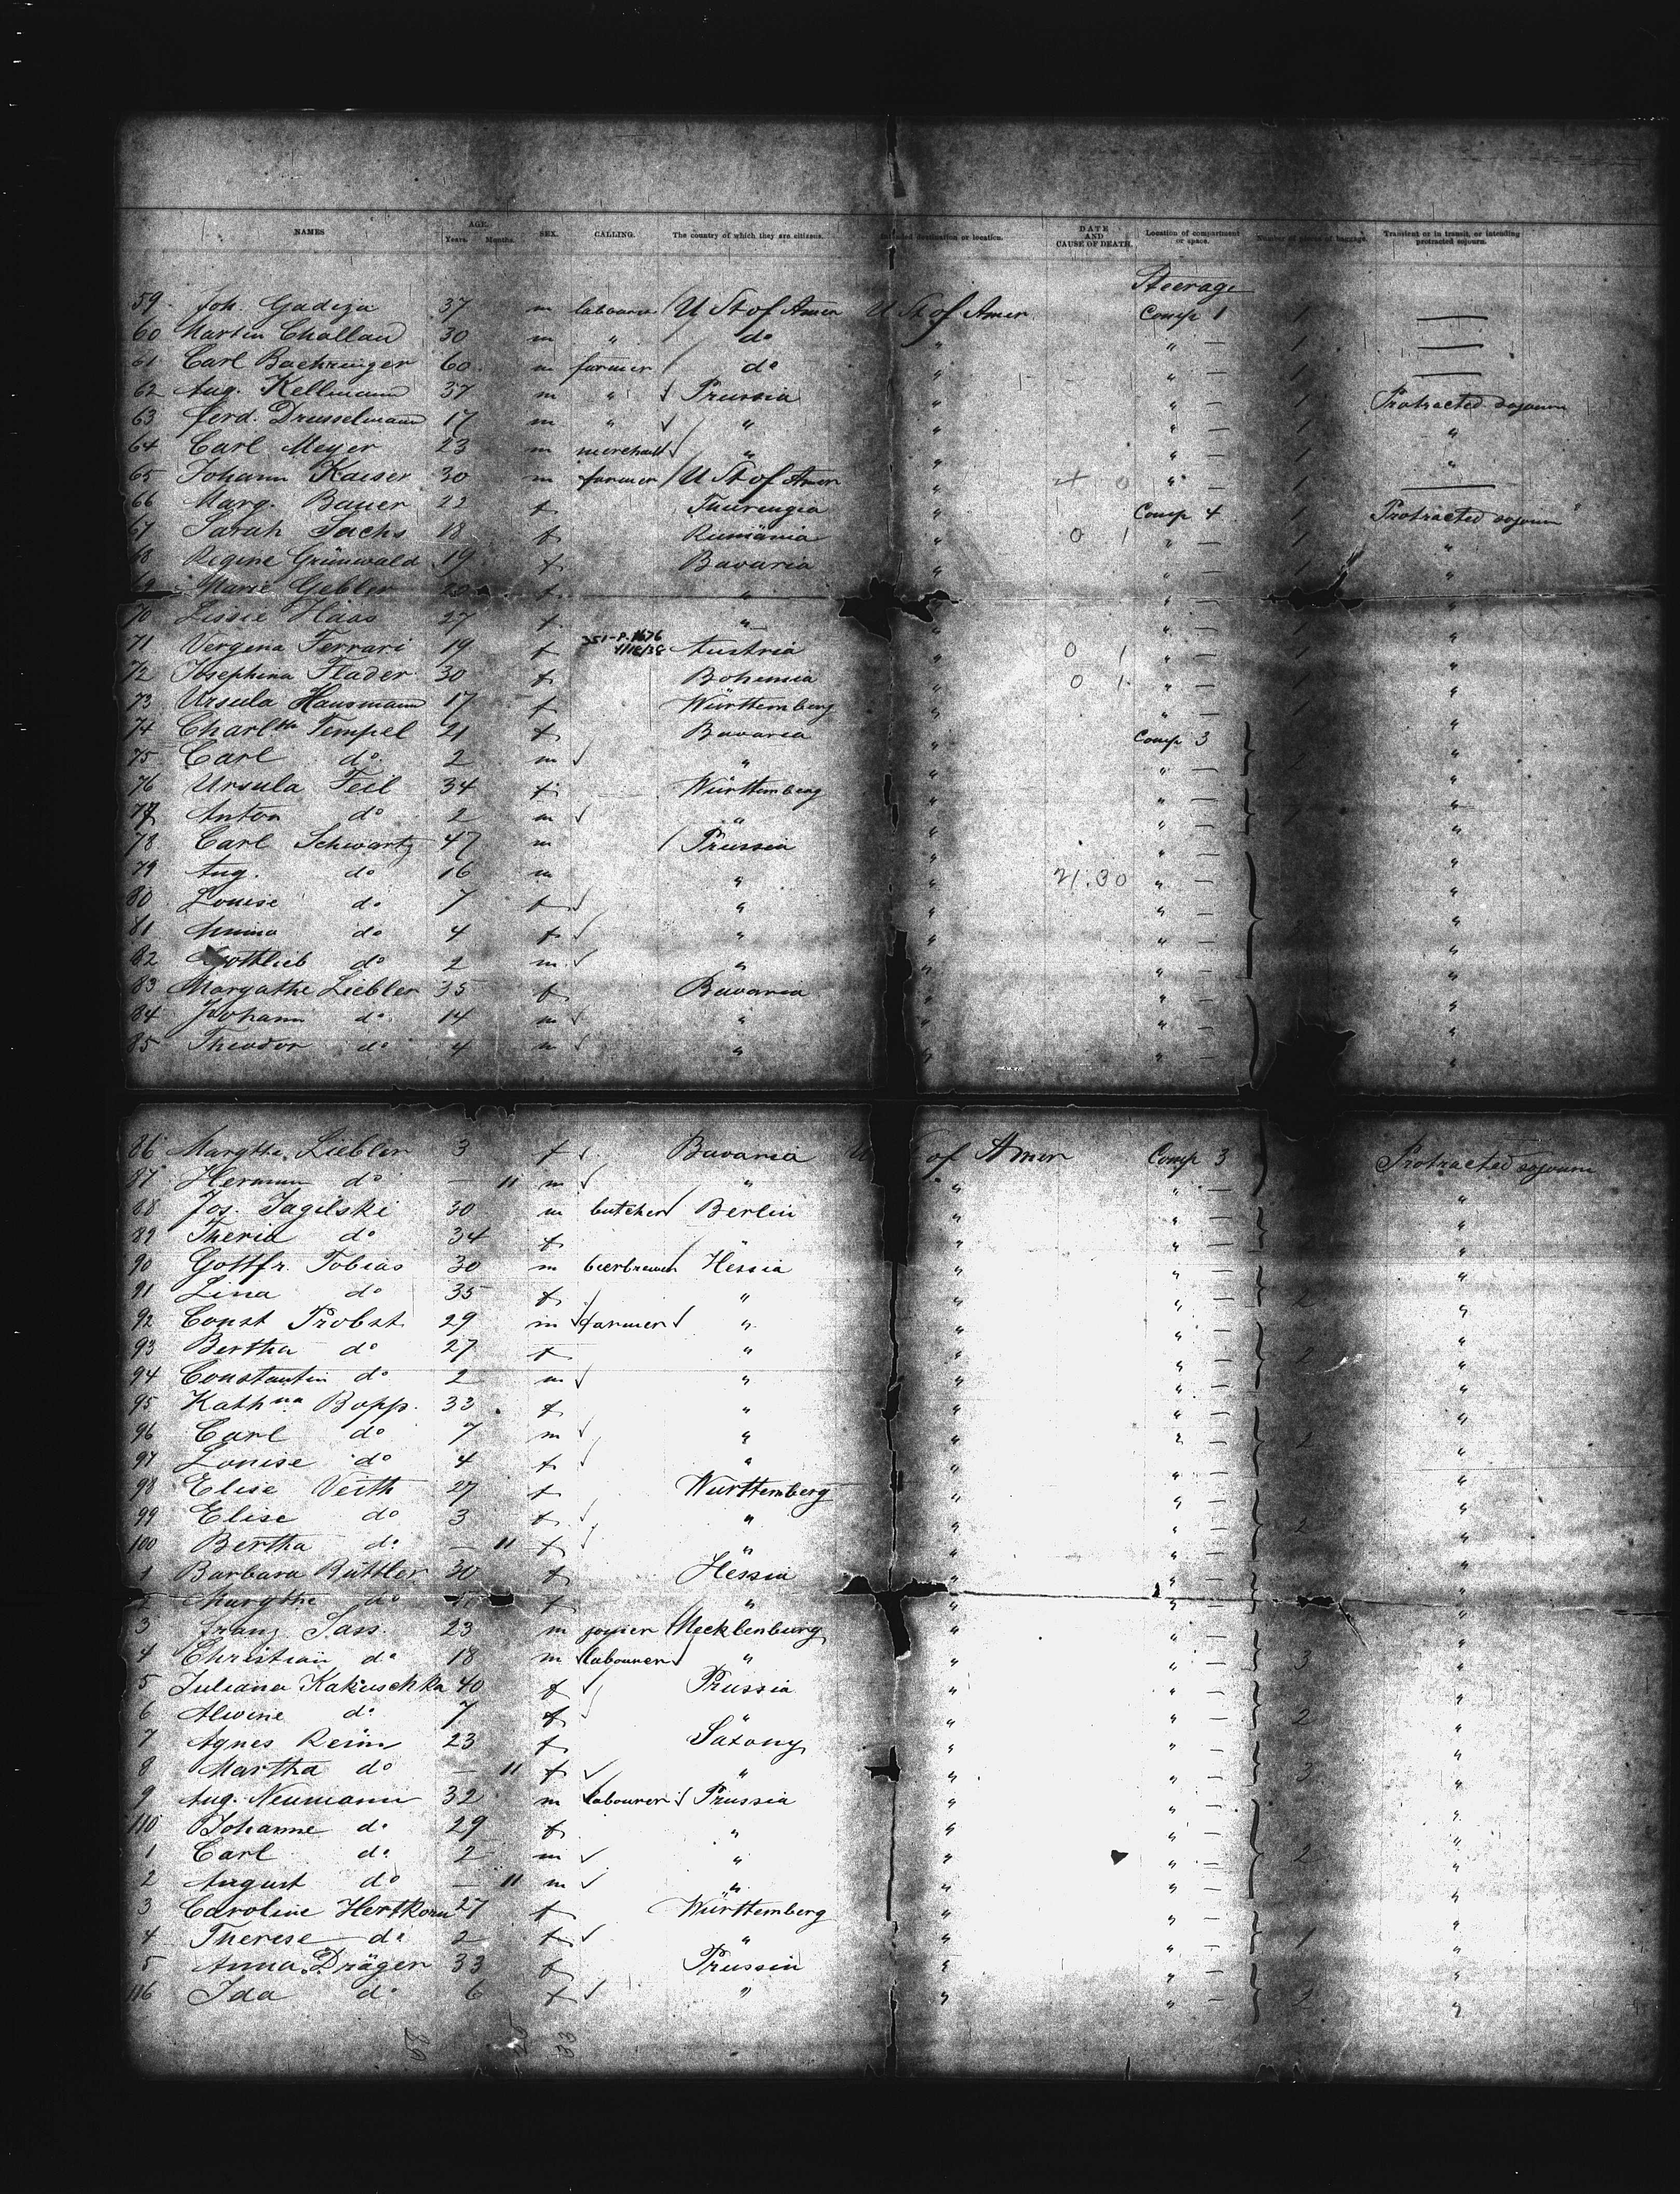 NAMES AGE. Years. Months. SEX. CALLING. The country of which they are citizens. Intended destination or location. DATE AND CAUSE OF DEATH. Location of compartment or space. Number of pieces of baggage. Transient or in transit, or intending protracted sojourn.
Steerage
59 Joh. Gadiza 37 m labourer U St of Amer U St of Amer Comp 1 1 —
60 Martin Challand 30 m " do " " — 1 —
61 Carl Baehringer 60 m farmer do " " — 1 —
62 Aug. Kellmann 37 m " Prussia " " — 1 Protracted sojourn
63 Ferd. Drusselmann 17 m " " " " — 1 "
64 Carl Meyer 23 m merchant " " " — 1 "
65 Johann Kaiser 30 m farmer U St of Amer " " — 1 —
66 Marg. Bauer 22 f Tuurengia " Comp 4 1 Protracted sojourn
67 Sarah Sachs 18 f Rumänia " 0 1 " — 1 "
68 Regine Grünwald 19 f Bavaria " " — 1 "
69 Marie Gebler 20 f " " —
70 Lissie Haas 27 f " " " — 1 "
71 Vergena Ferrari 19 f 351-P.1676 1/18/38 Austria " 0 1 " — 1 "
72 Josephina Flader 30 f Bohemia " 0 1 " — 1 "
73 Ursula Hausmann 17 f Württemberg " " — 1 "
74 Charltte Tempel 21 f Bavaria " Comp 3 "
75 Carl do 2 m " " " — 2 "
76 Ursula Feil 34 f Württemberg " " — "
77 Anton do 2 m " " " — 1 "
78 Carl Schwartz 47 m Prussia " " — "
79 Aug. do 16 m " " 21.30 " — "
80 Louise do 7 f " " " — "
81 Anna do 4 f " " " — "
82 Gottlieb do 2 m " " " — "
83 Margathe Liebler 35 f Bavaria " " — "
84 Johann do 14 m " " " — "
85 Theodor do 4 m " " " — "
86 Margthe. Liebler 3 f Bavaria U of Amer Comp 3 Protracted sojourn
87 Hermann do — 11 m " " " — "
88 Jos. Jagilski 30 m butcher Berlin " " — "
89 Theria do 34 f " " — "
90 Gottfr. Tobias 30 m beerbrewer Hessia " " — "
91 Lina do 35 f " " " — 2 "
92 Const Probst 29 m farmer " " " — "
93 Bertha do 27 f " " " — 2 "
94 Constantin do 2 m " " " — "
95 Kathna Bopp. 33 f " " " — "
96 Carl do 7 m " " " — 2 "
97 Louise do 4 f " " " — "
98 Elise Veith 27 f Württemberg " " — "
99 Elise do 3 f " " " — 2 "
100 Bertha do — 11 f " " " — "
1 Barbara Büttler 30 f Hessia " " — "
2 Margthe do f " " " — "
3 Franz Sass 23 m joyner Mecklenburg " " — "
4 Christian do 18 m labourer " " " — 3 "
5 Juliana Kakuschka 40 f Prussia " " — "
6 Alwine do 7 f " " " — 2 "
7 Agnes Reim 23 f Saxony " " — "
8 Martha do — 11 f " " " — 3 "
9 Aug. Neumann 32 m labourer Prussia " " — "
110 Johanne do 29 f " " " — "
1 Carl do 2 m " " " — 2 "
2 August do — 11 m " " " — "
3 Caroline Hertkorn 27 f Württemberg " " — "
4 Therese do 2 f " " " — 1 "
5 Anna Dräger 33 f Prussia " " — "
116 Ida do 6 f " " " — 2 "
58 25 33